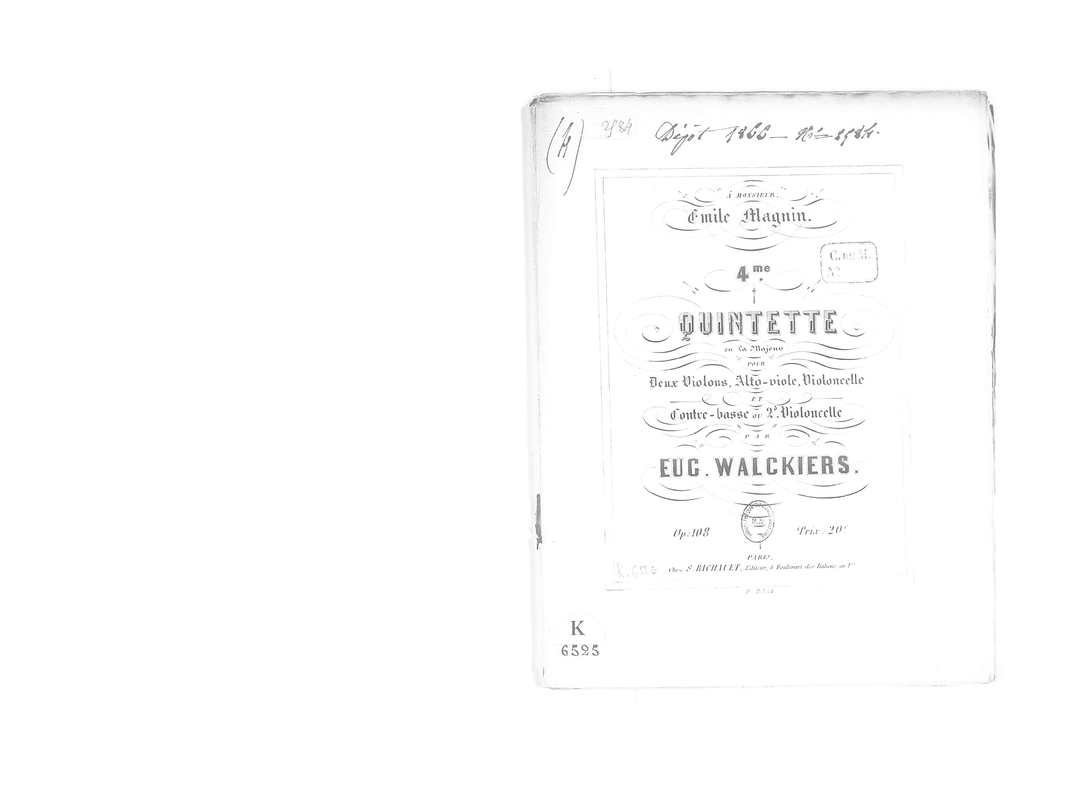 (4) 2584 Dépôt 1866 — No = 2584.
À MONSIEUR,
Emile Magnin.
C. DE M.
No
4me
QUINTETTE
en La Majeur
POUR
Deux Violons, Alto-viole, Violoncelle
ET
Contre-basse ou 2d. Violoncelle
PAR
EUG. WALCKIERS.
Op: 108
Prix: 20f
PARIS,
Chez S. RICHAULT, Editeur, 4 Boulevart des Italiens au 1er
K. 6525
K
6525